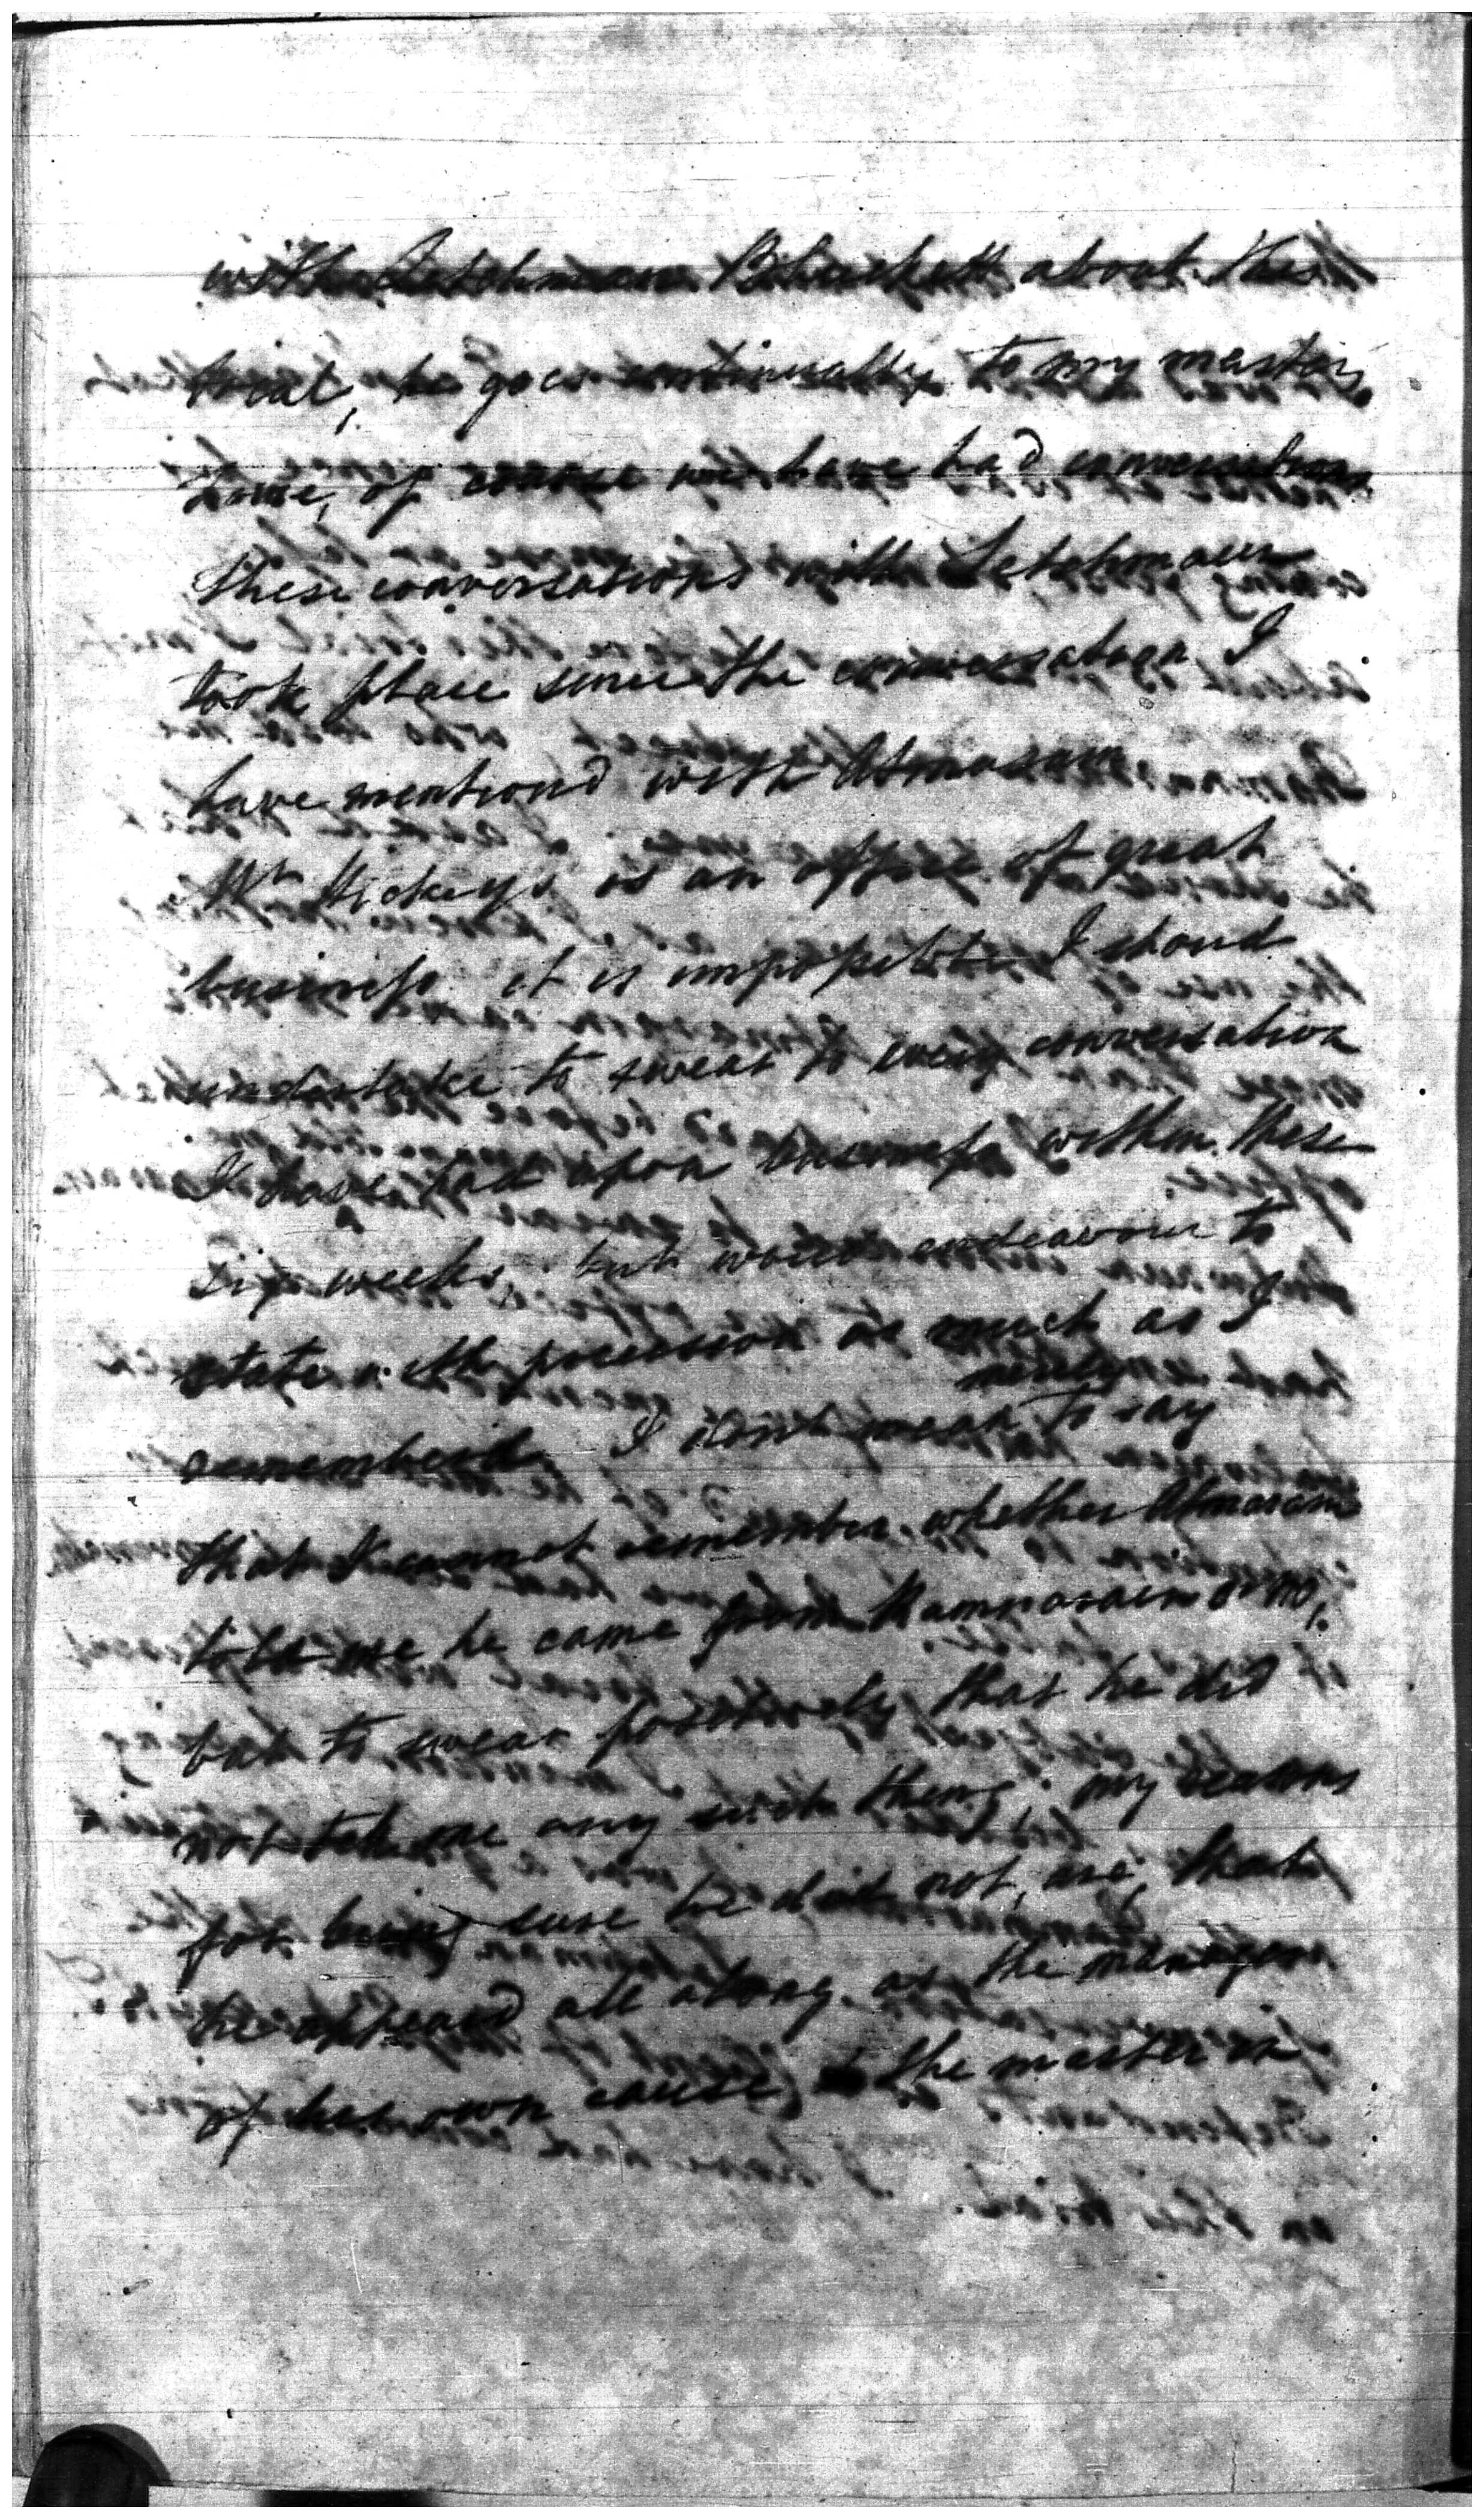 with Letchmaun about this
trial, he goes continually to my masters
house, of course we have had conversations
these conversations with Letchmaun
took place since the conversation I
have mentiond with Atmaram
Mr Hickeys is an office of great
business it is impossible I should
undertake to swear to every conversation
I have had upon business within these
six weeks, but would endeavour to
state with precission as much as I
rememberd I dont mean to say
merely
that I cannot remember whether Atmaram
told me he came from Ramnarain or no,
but to swear positively that he did
not tell me any such thing; my reasons
for being sure he did not, are, that
he appeard all along as the manager
of his own cause, the master in